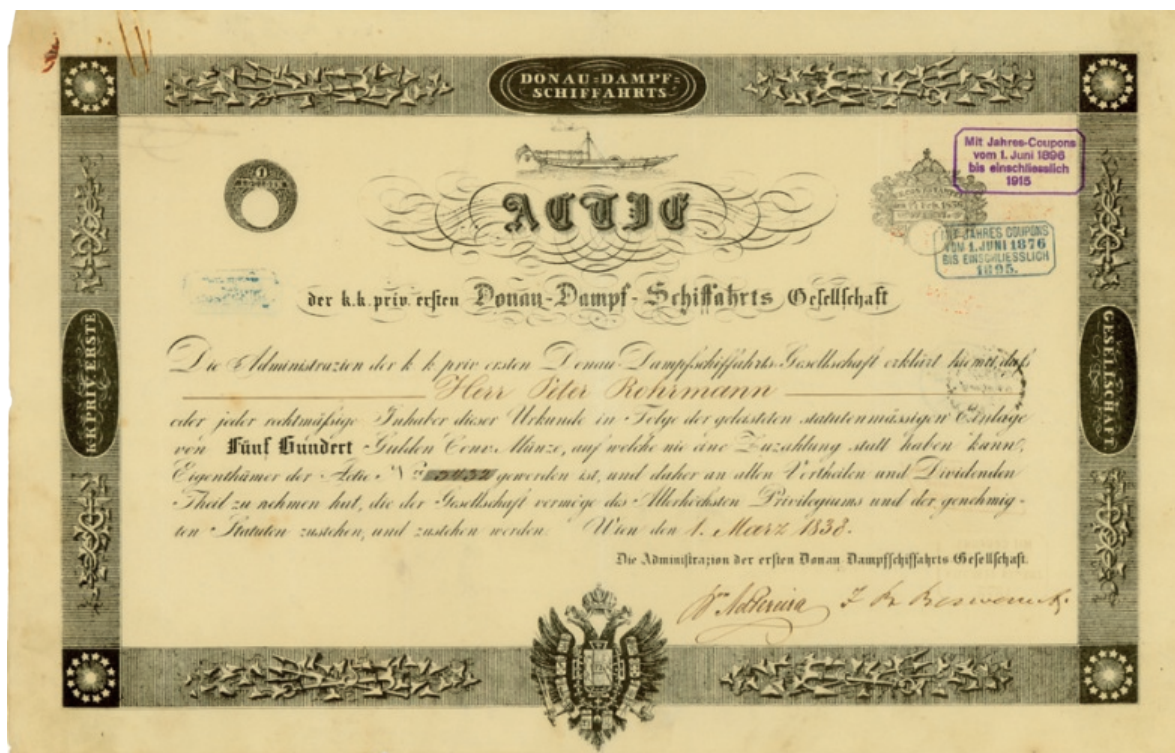 DONAU=DAMPF=
SCHIFFAHRTS
Mit Jahres-Coupons
vom 1. Juni 1896
bis einschliesslich
1915
ACTIE
MIT JAHRES COUPONS
VOM 1. JUNI 1876
BIS EINSCHLIESSLICH
1895.
der k.k. priv. ersten Donau-Dampf-Schiffahrts Gesellschaft
K.K. PRIV. ERSTE
GESELLSCHAFT
Die Administrazion der k. k. priv. ersten Donau-Dampfschiffahrts-Gesellschaft erklärt hiemit, daß
Herr Peter Rohrmann
oder jeder rechtmäßige Inhaber dieser Urkunde in Folge der geleisteten statutenmässigen Einlage
von Fünf Hundert Gulden Conv. Münze, auf welche nie eine Zuzahlung statt haben kann,
Eigenthümer der Actie No. geworden ist, und daher an allen Vortheilen und Dividenden
Theil zu nehmen hat, die der Gesellschaft vermöge des Allerhöchsten Privilegiums und der genehmig-
ten Statuten zustehen, und zustehen werden. Wien den 1. Maerz 1838.
Die Administrazion der ersten Donau-Dampfschiffahrts Gesellschaft.